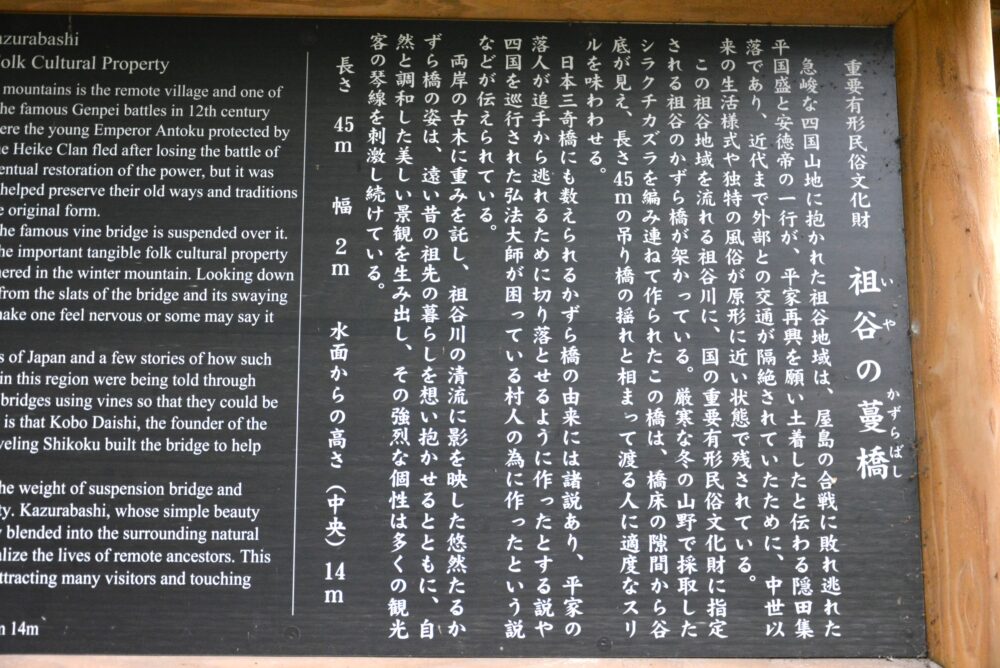 重要有形民俗文化財
祖谷の蔓橋
いや
かずらばし
急峻な四国山地に抱かれた祖谷地域は、屋島の合戦に敗れ逃れた
平国盛と安徳帝の一行が、平家再興を願い土着したと伝わる隠田集
落であり、近代まで外部との交通が隔絶されていたために、中世以
来の生活様式や独特の風俗が原形に近い状態で残されている。
この祖谷地域を流れる祖谷川に、国の重要有形民俗文化財に指定
される祖谷のかずら橋が架かっている。厳寒な冬の山野で採取した
シラクチカズラを編み連ねて作られたこの橋は、橋床の隙間から谷
底が見え、長さ45mの吊り橋の揺れと相まって渡る人に適度なスリ
ルを味わわせる。
日本三奇橋にも数えられるかずら橋の由来には諸説あり、平家の
落人が追手から逃れるために切り落とせるように作ったとする説や
四国を巡行された弘法大師が困っている村人の為に作ったという説
などが伝えられている。
両岸の古木に重みを託し、祖谷川の清流に影を映した悠然たるか
ずら橋の姿は、遠い昔の祖先の暮らしを想い抱かせるとともに、自
然と調和した美しい景観を生み出し、その強烈な個性は多くの観光
客の琴線を刺激し続けている。
長さ 45m 幅 2m 水面からの高さ(中央)14m
azurabashi
olk Cultural Property
mountains is the remote village and one of
he famous Genpei battles in 12th century
ere the young Emperor Antoku protected by
he Heike Clan fled after losing the battle of
entual restoration of the power, but it was
helped preserve their old ways and traditions
e original form.
he famous vine bridge is suspended over it.
he important tangible folk cultural property
hered in the winter mountain. Looking down
from the slats of the bridge and its swaying
make one feel nervous or some may say it
s of Japan and a few stories of how such
in this region were being told through
bridges using vines so that they could be
is that Kobo Daishi, the founder of the
veling Shikoku built the bridge to help
he weight of suspension bridge and
ty. Kazurabashi, whose simple beauty
y blended into the surrounding natural
alize the lives of remote ancestors. This
ttracting many visitors and touching
m 14m